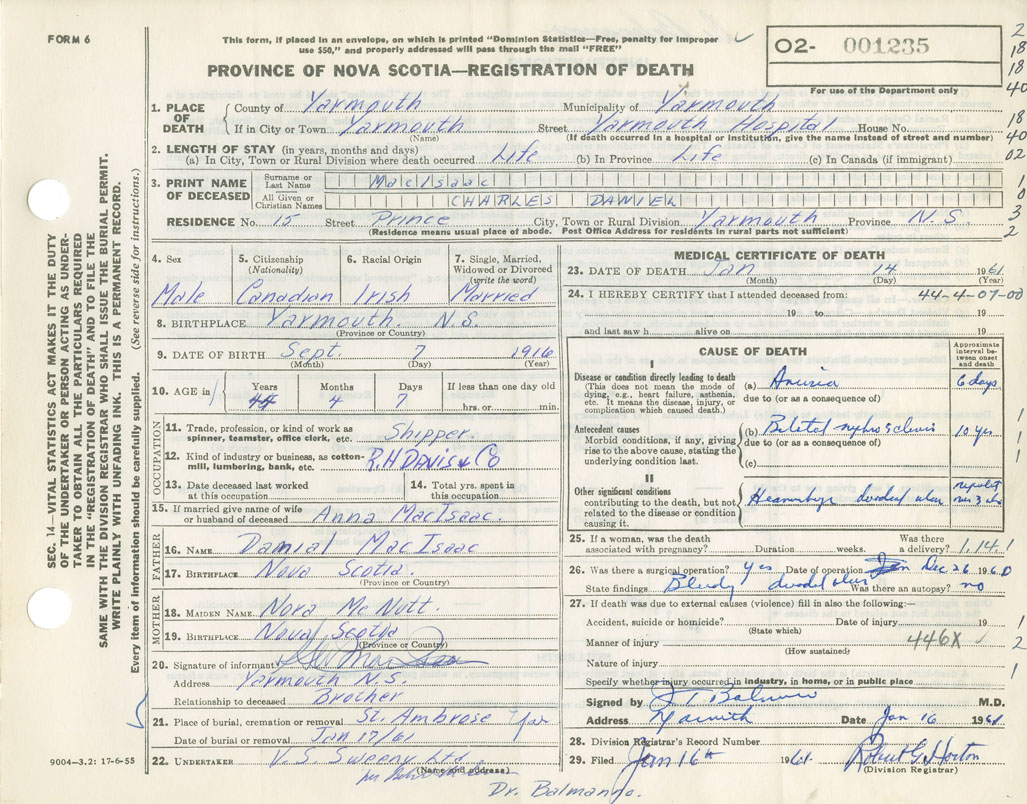 FORM 6
This form, if placed in an envelope, on which is printed "Dominion Statistics—Free, penalty for improper
use $50," and properly addressed will pass through the mail "FREE"
PROVINCE OF NOVA SCOTIA—REGISTRATION OF DEATH
O2- 001235
For use of the Department only
2
18
18
40
18
40
02
1
0
3
2
1. PLACE OF DEATH
County of Yarmouth Municipality of Yarmouth
If in City or Town Yarmouth Street Yarmouth Hospital House No.
(Name) (If death occurred in a hospital or institution, give the name instead of street and number)
2. LENGTH OF STAY (in years, months and days)
(a) In City, Town or Rural Division where death occurred Life (b) In Province Life (c) In Canada (if immigrant)
3. PRINT NAME OF DECEASED
Surname or Last Name MacIsaac
All Given or Christian Names CHARLES DANIEL
RESIDENCE No. 15 Street Prince City, Town or Rural Division Yarmouth Province N.S.
(Residence means usual place of abode. Post Office Address for residents in rural parts not sufficient)
4. Sex Male
5. Citizenship (Nationality) Canadian
6. Racial Origin Irish
7. Single, Married, Widowed or Divorced (write the word) Married
8. BIRTHPLACE Yarmouth. N.S.
(Province or Country)
9. DATE OF BIRTH Sept. 7 1916
(Month) (Day) (Year)
10. AGE in Years 44 Months 4 Days 7 If less than one day old
hrs. or min.
OCCUPATION
11. Trade, profession, or kind of work as spinner, teamster, office clerk, etc. Shipper.
12. Kind of industry or business, as cotton-mill, lumbering, bank, etc. R.H DAVIS & Co
13. Date deceased last worked at this occupation
14. Total yrs. spent in this occupation
15. If married give name of wife or husband of deceased Anna MacIsaac.
FATHER
16. NAME Damial MacIsaac
17. BIRTHPLACE Nova Scotia.
(Province or Country)
MOTHER
18. MAIDEN NAME Nora McNutt.
19. BIRTHPLACE Nova Scotia
(Province or Country)
20. Signature of informant
Address Yarmouth N.S.
Relationship to deceased Brother
21. Place of burial, cremation or removal St. Ambrose Yar
Date of burial or removal Jan 17/61
22. UNDERTAKER V.S. Sweeny Ltd
(Name and address)
Dr. Balmanno.
MEDICAL CERTIFICATE OF DEATH
23. DATE OF DEATH Jan 14 1961
(Month) (Day) (Year)
24. I HEREBY CERTIFY that I attended deceased from: 44-4-07-00
19 to 19
and last saw h alive on 19
CAUSE OF DEATH
Approximate interval between onset and death
I
Disease or condition directly leading to death
(This does not mean the mode of dying, e.g., heart failure, asthenia, etc. It means the disease, injury, or complication which caused death.)
(a) Anuria 6 days
due to (or as a consequence of)
Antecedent causes
Morbid conditions, if any, giving rise to the above cause, stating the underlying condition last.
(b) 10 yrs
due to (or as a consequence of)
(c)
II
Other significant conditions
contributing to the death, but not related to the disease or condition causing it.
duodenal ulcer
25. If a woman, was the death associated with pregnancy? Duration weeks. Was there a delivery? 1.14.1
26. Was there a surgical operation? Yes Date of operation Dec 26 1960
State findings duodenal ulcer Was there an autopsy? no
27. If death was due to external causes (violence) fill in also the following:—
Accident, suicide or homicide? Date of injury 19
(State which)
Manner of injury 446X
(How sustained)
Nature of injury
Specify whether injury occurred in industry, in home, or in public place
1
1
1
1
2
1
Signed by M.D.
Address Yarmouth Date Jan 16 1961
28. Division Registrar's Record Number
29. Filed Jan 16th 1961 Robert G. Horton
(Division Registrar)
SEC. 14—VITAL STATISTICS ACT MAKES IT THE DUTY
OF THE UNDERTAKER OR PERSON ACTING AS UNDER-
TAKER TO OBTAIN ALL THE PARTICULARS REQUIRED
IN THE "REGISTRATION OF DEATH" AND TO FILE THE
SAME WITH THE DIVISION REGISTRAR WHO SHALL ISSUE THE BURIAL PERMIT.
WRITE PLAINLY WITH UNFADING INK. THIS IS A PERMANENT RECORD.
Every item of information should be carefully supplied. (See reverse side for instructions.)
9004—3.2: 17-6-55